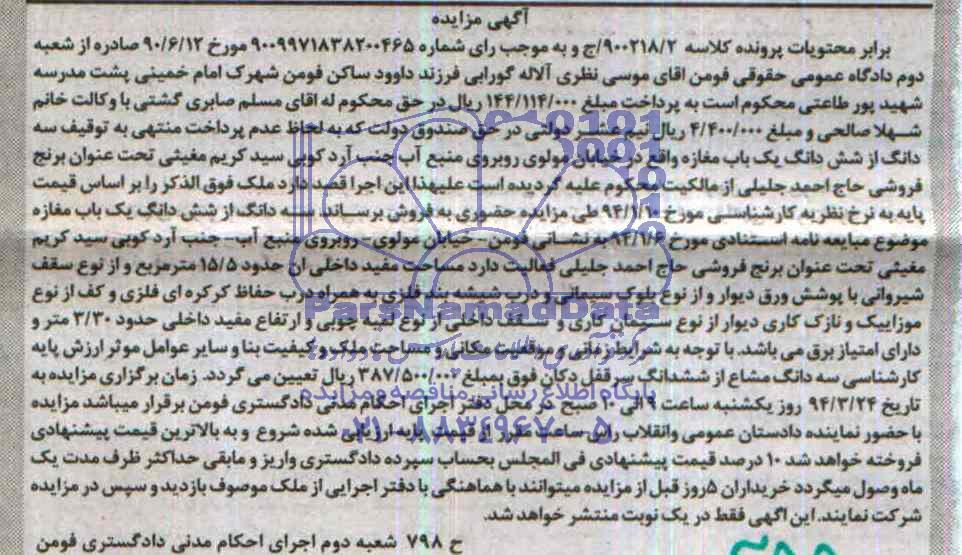 آگهی مزایده
برابر محتویات پرونده کلاسه ۹۰۰۲۱۸/۲/ج و به موجب رای شماره ۹۰۰۹۹۷۱۸۳۸۲۰۰۴۶۵ مورخ ۹۰/۶/۱۲ صادره از شعبه
دوم دادگاه عمومی حقوقی فومن اقای موسی نظری آلاله گورابی فرزند داوود ساکن فومن شهرک امام خمینی پشت مدرسه
شهید پور طاعتی محکوم است به پرداخت مبلغ ۱۴۴/۱۱۴/۰۰۰ ریال در حق محکوم له اقای مسلم صابری گشتی با وکالت خانم
شهلا صالحی و مبلغ ۴/۴۰۰/۰۰۰ ریال نیم عشر دولتی در حق صندوق دولت که به لحاظ عدم پرداخت منتهی به توقیف سه
دانگ از شش دانگ یک باب مغازه واقع در خیابان مولوی روبروی منبع آب جنب آرد کوبی سید کریم مغیثی تحت عنوان برنج
فروشی حاج احمد جلیلی از مالکیت محکوم علیه گردیده است علیهذا این اجرا قصد دارد ملک فوق الذکر را بر اساس قیمت
پایه به نرخ نظریه کارشناسی مورخ ۹۴/۱/۱۰ طی مزایده حضوری به فروش برساند. سه دانگ از شش دانگ یک باب مغازه
موضوع مبایعه نامه استنادی مورخ ۹۲/۱/۶ به نشانی فومن - خیابان مولوی - روبروی منبع آب - جنب آرد کوبی سید کریم
مغیثی تحت عنوان برنج فروشی حاج احمد جلیلی فعالیت دارد مساحت مفید داخلی ان حدود ۱۵/۵ مترمربع و از نوع سقف
شیروانی با پوشش ورق دیوار و از نوع بلوک سیمانی و درب شیشه بند فلزی به همراه درب حفاظ کرکره ای فلزی و کف از نوع
موزاییک و نازک کاری دیوار از نوع سیمان کاری و سقف داخلی از نوع لنبه چوبی و ارتفاع مفید داخلی حدود ۳/۳۰ متر و
دارای امتیاز برق می باشد. با توجه به شرایط زمانی و موقعیت مکانی و مساحت ملک و کیفیت بنا و سایر عوامل موثر ارزش پایه
کارشناسی سه دانگ مشاع از ششدانگ سرقفل دکان فوق بمبلغ ۳۸۷/۵۰۰/۰۰۰ ریال تعیین می گردد. زمان برگزاری مزایده به
تاریخ ۹۴/۳/۲۴ روز یکشنبه ساعت ۹ الی ۱۰ صبح در محل دفتر اجرای احکام مدنی دادگستری فومن برقرار میباشد مزایده
با حضور نماینده دادستان عمومی وانقلاب راس ساعت مقرر از قیمت پایه ارزیابی شده شروع و به بالاترین قیمت پیشنهادی
فروخته خواهد شد ۱۰ درصد قیمت پیشنهادی فی المجلس بحساب سپرده دادگستری واریز و مابقی حداکثر ظرف مدت یک
ماه وصول میگردد خریداران ۵ روز قبل از مزایده میتوانند با هماهنگی با دفتر اجرایی از ملک موصوف بازدید و سپس در مزایده
شرکت نمایند. این اگهی فقط در یک نوبت منتشر خواهد شد.
ح ۷۹۸ شعبه دوم اجرای احکام مدنی دادگستری فومن
ParsNamadData
پایگاه اطلاع رسانی مناقصه و مزایده
۰۲۱-۸۸۳۴۹۶۷۰-۵